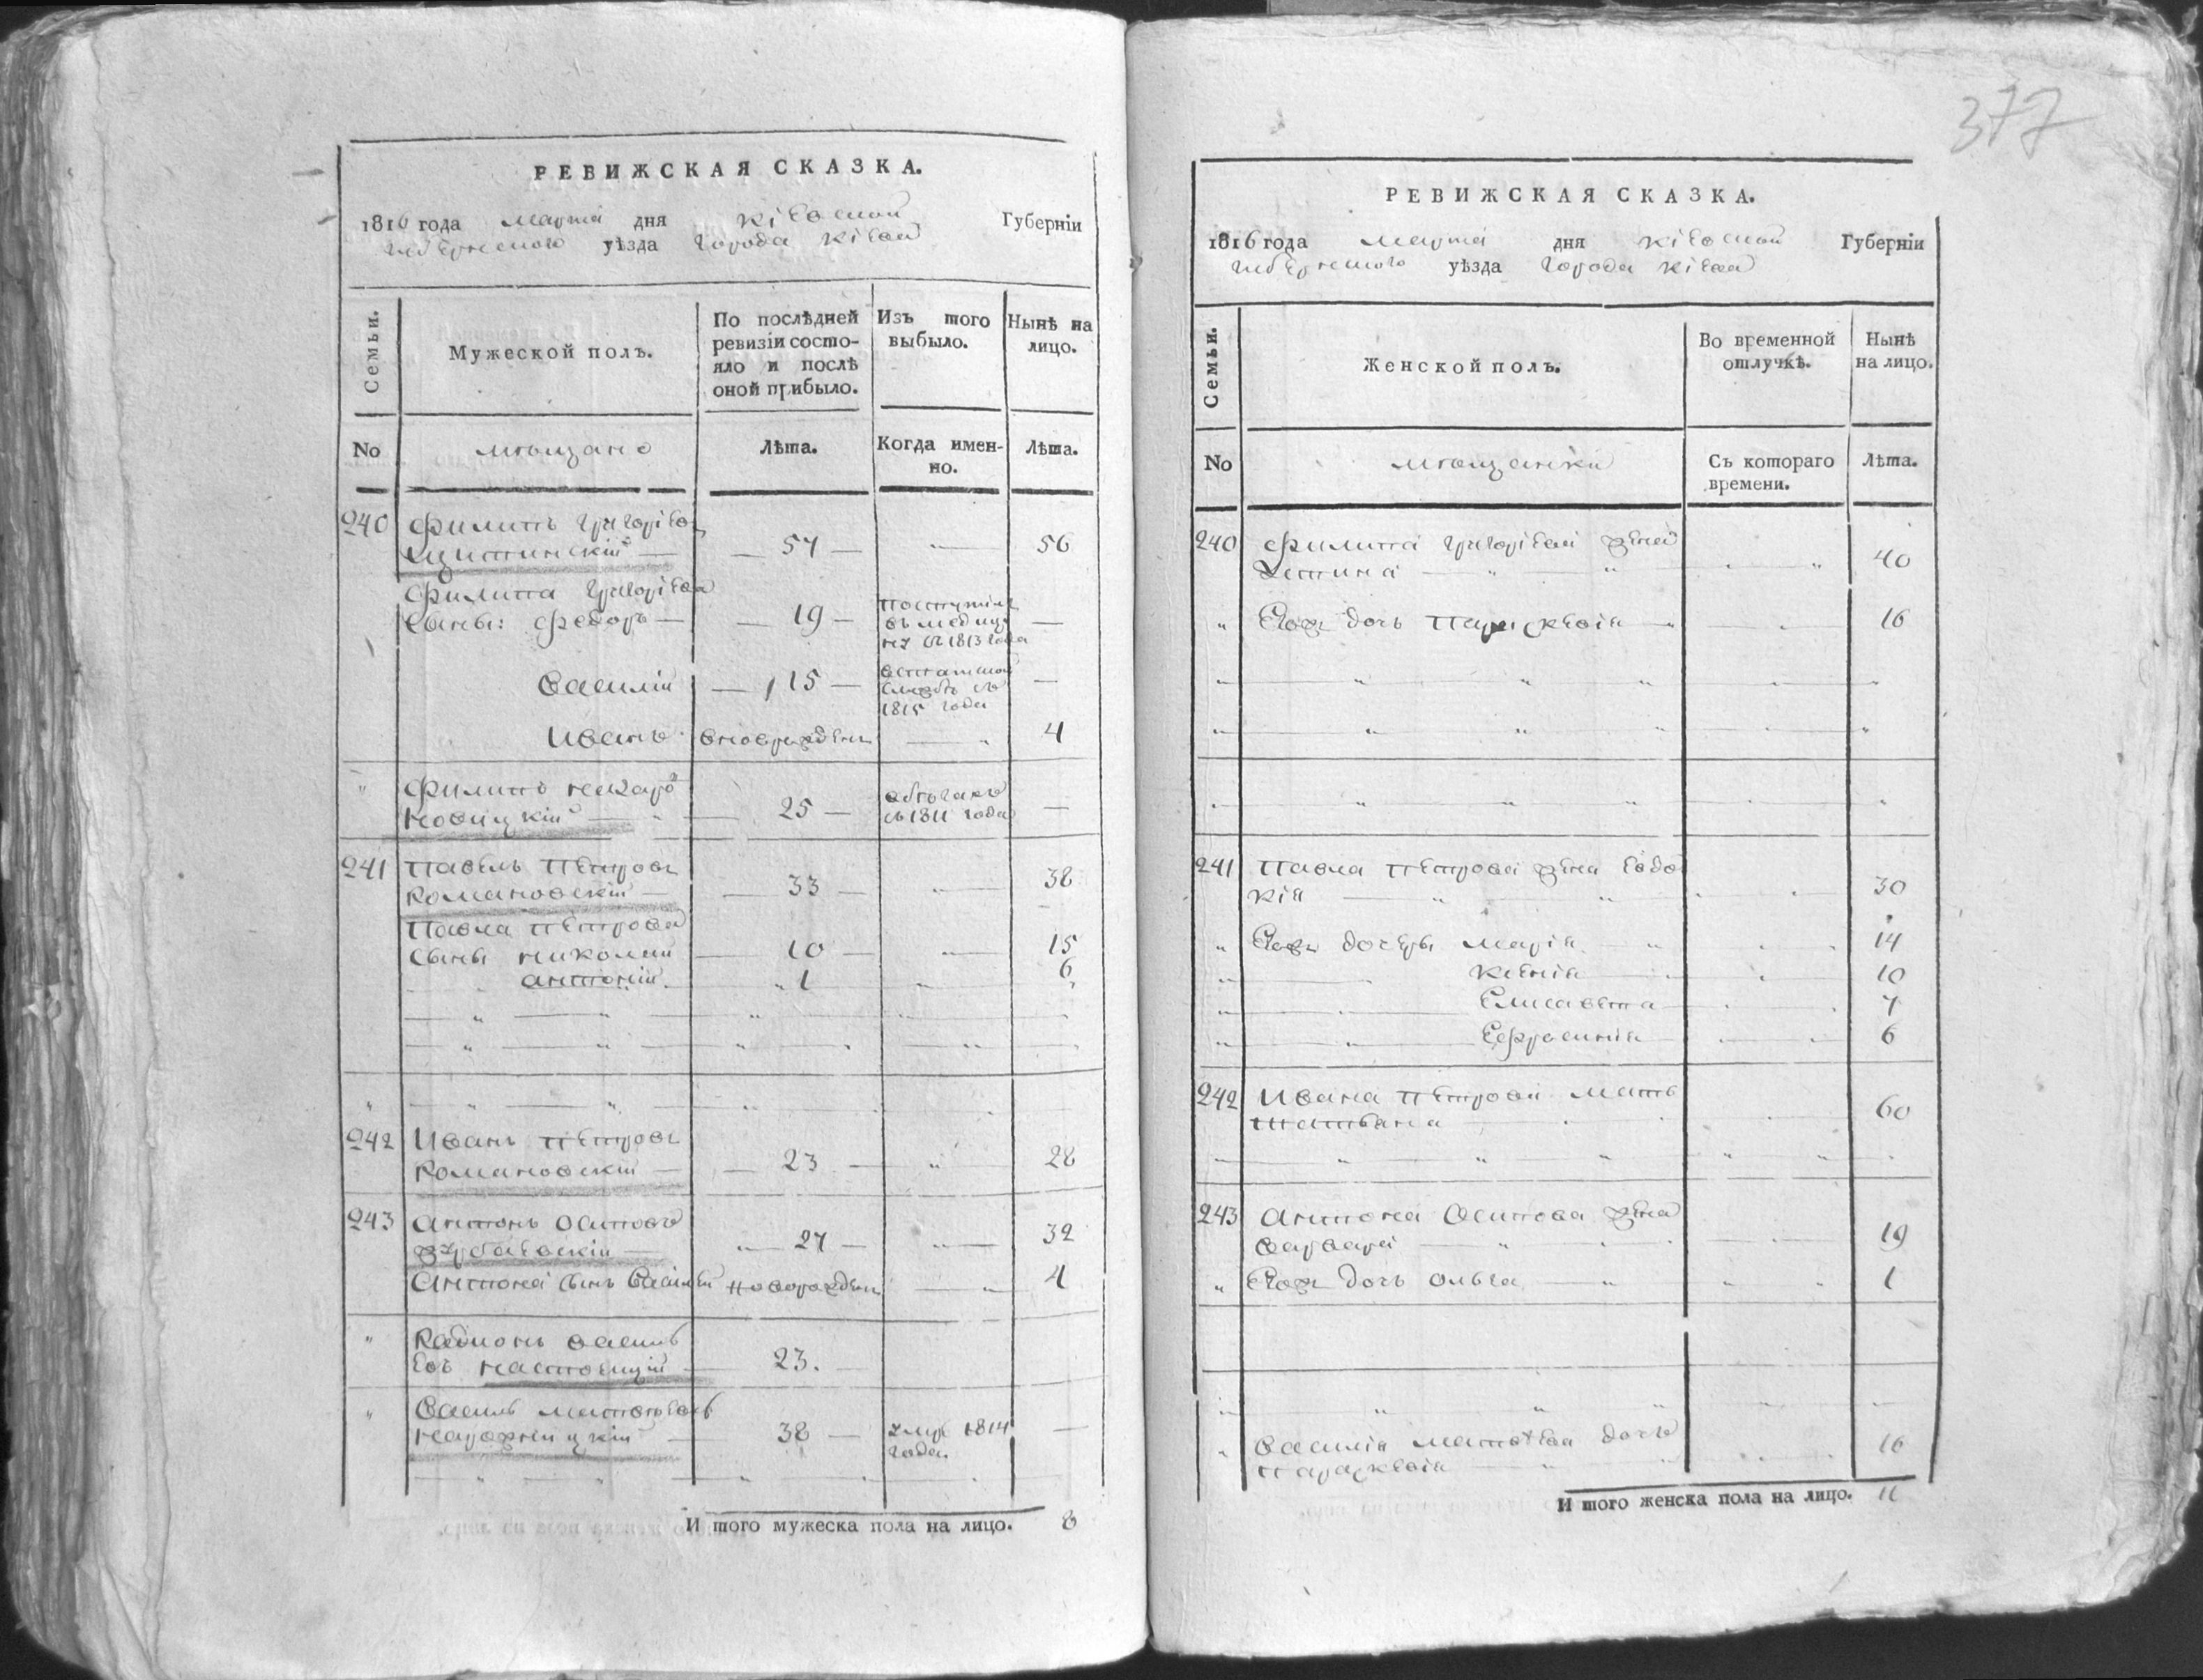 377
РЕВИЖСКАЯ СКАЗКА.
1816 года марта дня Кіевской Губерніи
уѣзда города Кіева
Семьи.
Мужеской полъ.
По послѣдней ревизіи состо-
яло и послѣ
оной прибыло.
Изъ того
выбыло.
Нынѣ на
лицо.
No
мѣщане
Лѣта.
Когда имен-
но.
Лѣта.
240 Филипъ Григоріевъ
57 — 56
Филипа Григоріева
Сыны: Федоръ — 19 —
съ 1813 года
Василій — 15 —
съ
1815 года
Иванъ 4
Филипъ
Новицкій 25 —
съ 1811 года
241 Павелъ Петровъ
Романовскій — 33 — 38
Павла Петрова
Сыны Николай — 10 — 15
Антоній 1 6
242 Иванъ Петровъ
Романовскій — 23 — 28
243 Антонъ Осиповъ
27 — 32
Антона сынъ Василій новорожденъ 4
Радионъ Василь
евъ 23.
38 — умре 1814
года
И того мужеска пола на лицо. 8
РЕВИЖСКАЯ СКАЗКА.
1816 года марта дня Кіевской Губерніи
уѣзда города Кіева
Семьи.
Женской полъ.
Во временной
отлучкѣ.
Нынѣ
на лицо.
No
мѣщанки
Съ котораго
времени.
Лѣта.
240 Филипа Григоріева жена
Устина 40
Егоже дочь Параскевія 16
241 Павла Петрова жена Евдо
кія 30
Егоже дочеры Марія 14
Ксенія 10
Елисавета 7
Ефросинія 6
242 Ивана Петрова мать
Татьяна 60
243 Антона Осипова жена
Варвара 19
Егоже дочь Ольга 1
Василія Матвѣева дочь
Параскевія 16
И того женска пола на лицо. 11